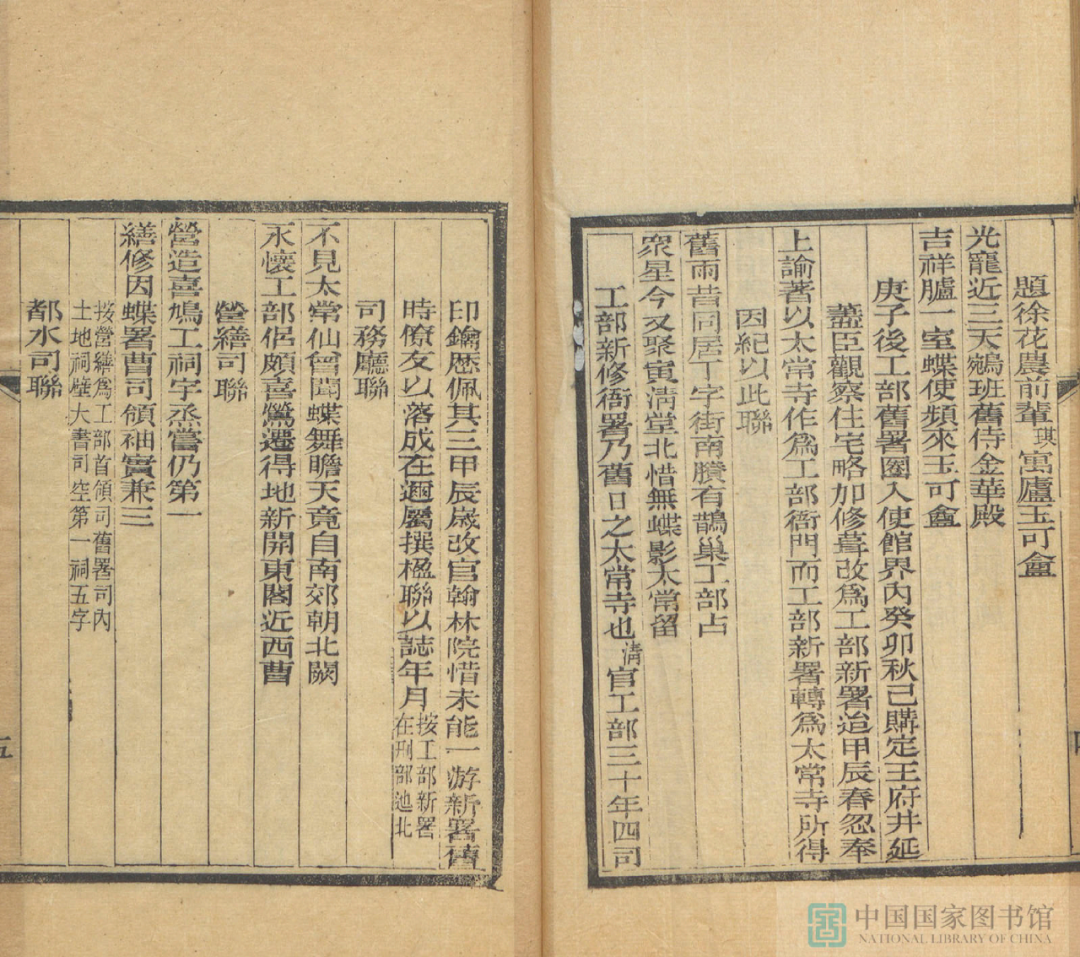 題徐花農前輩琪寓廬玉可盦
光寵近三天鵷班舊侍金華殿
吉祥臚一室蝶使頻來玉可盦
庚子後工部舊署圈入使館界內癸卯秋已購定王府井延
藎臣觀察住宅略加修葺改為工部新署迨甲辰春忽奉
上諭著以太常寺作為工部衙門而工部新署轉為太常寺所得
因紀以此聯
舊雨昔同居丁字街南賸有鵲巢工部占
衆星今又聚寅清堂北惜無蝶影太常留
工部新修衙署乃舊日之太常寺也清官工部三十年四司
印鑰歷佩其三甲辰歲改官翰林院惜未能一游新署舊
時僚友以落成在邇屬撰楹聯以誌年月按工部新署
在刑部迆北
司務廳聯
不見太常仙曾聞蝶舞瞻天竟自南郊朝北闕
永懷工部侶頗喜鶯遷得地新開東閣近西曹
營繕司聯
營造喜鳩工祠宇烝嘗仍第一
繕修因蝶署曹司領袖實兼三
按營繕為工部首領司舊署司內
土地祠壁大書司空第一祠五字
都水司聯
五
中国国家图书馆
NATIONAL LIBRARY OF CHINA